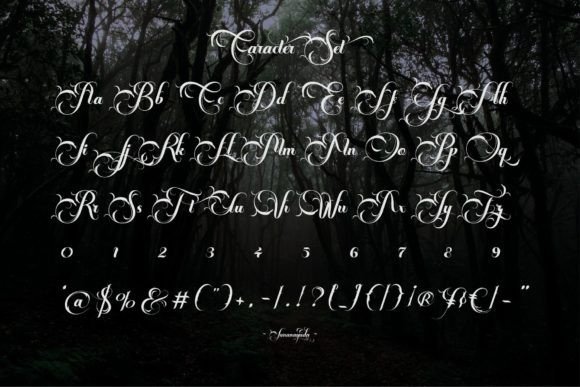 Caracter Set
Aa Bb Cc Dd Ee Ff Gg Hh
Ii Jj Kk Ll Mm Nn Oo Pp Qq
Rr Ss Tt Uu Vv Ww Xx Yy Zz
0 1 2 3 4 5 6 7 8 9